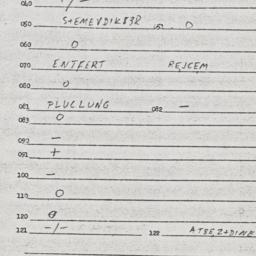 040 -/-
050 S+EMEVDIK83R 051 0
060 0
070 ENTFERT REJCEM
080 0
081 PLUCLUNG 082 -
083 0
092 -
091 +
100 -
110 0
120 0
121 -/- 122 ATBEZ+DINE